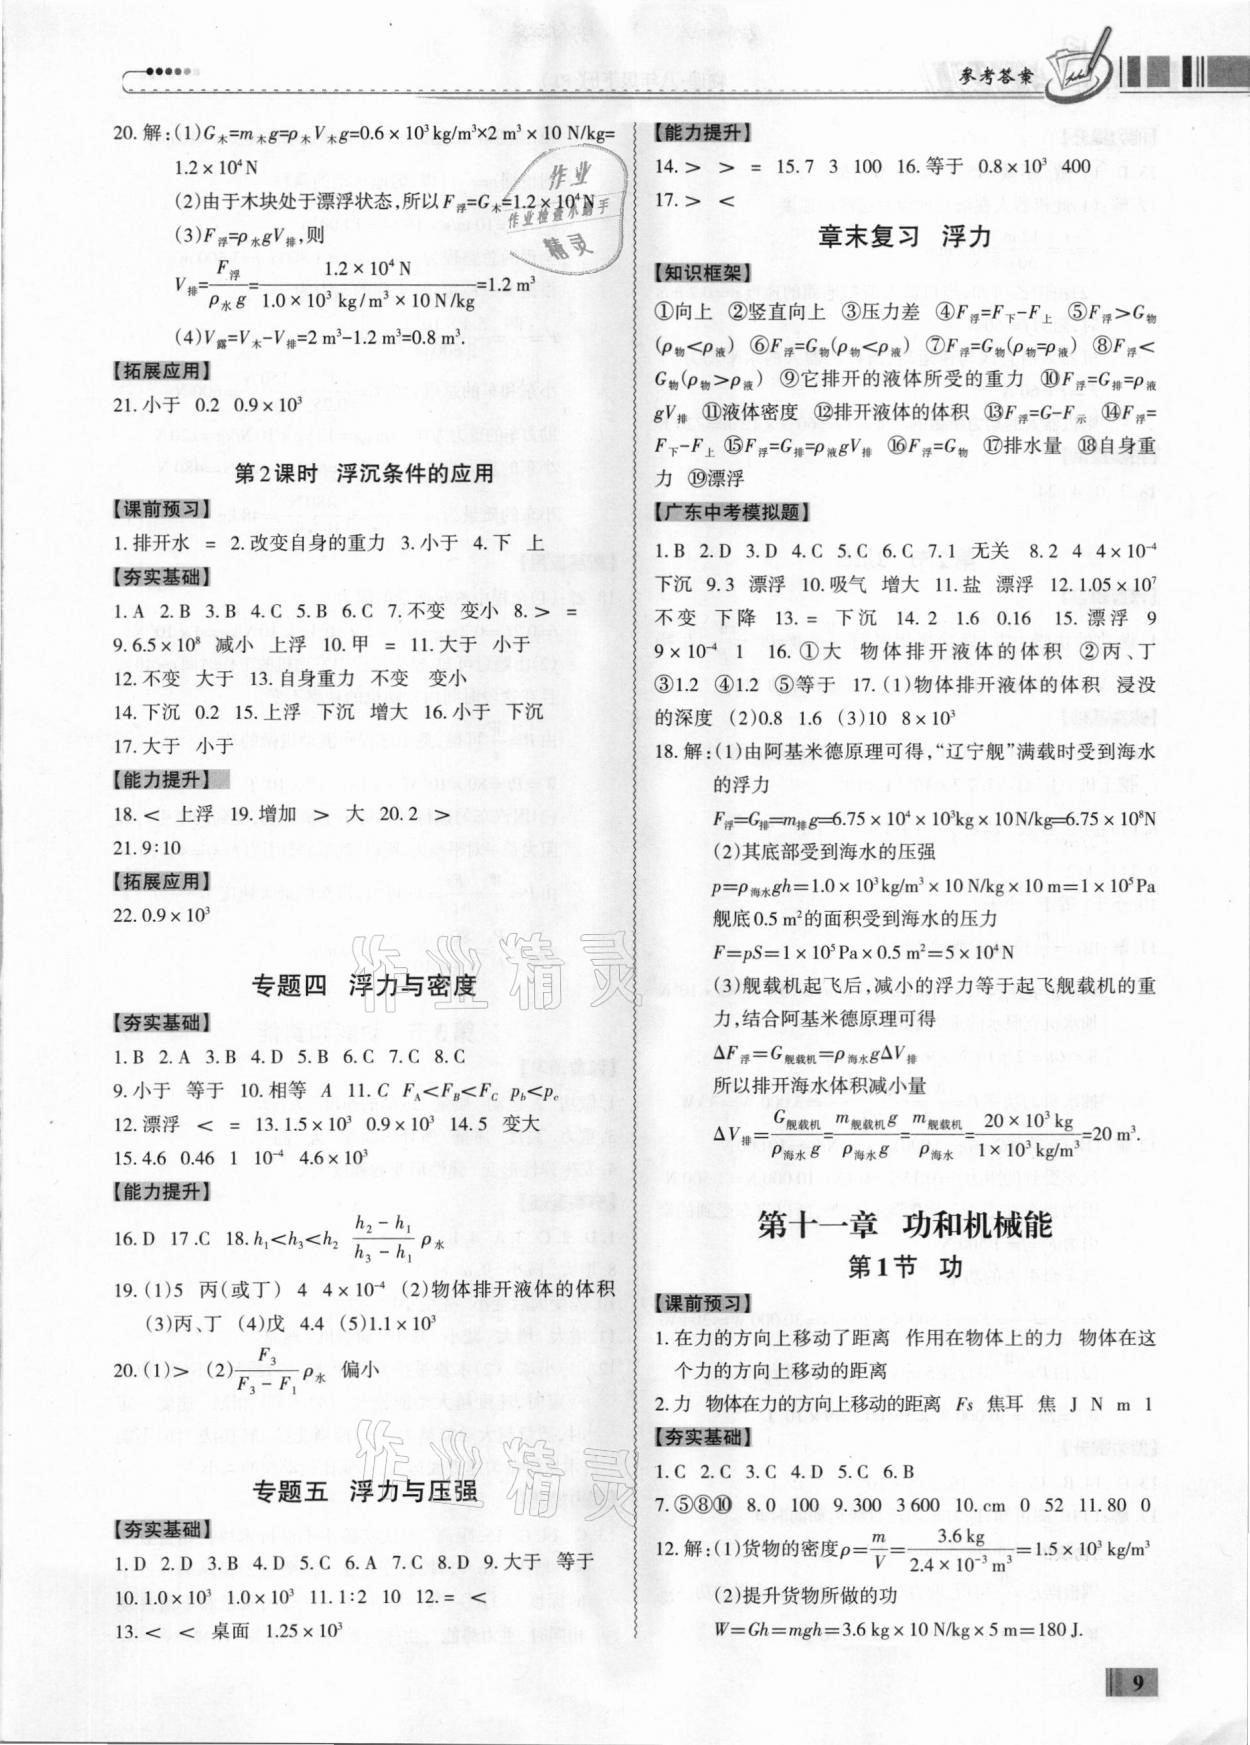 参考答案
20.解:(1)G木=m木g=ρ木V木g=0.6×10³kg/m³×2 m³×10 N/kg=
1.2×10⁴N
(2)由于木块处于漂浮状态,所以F浮=G木=1.2×10⁴N
(3)F浮=ρ水gV排,则
V排=F浮/ρ水g=1.2×10⁴N/1.0×10³kg/m³×10N/kg=1.2 m³
(4)V露=V木-V排=2 m³-1.2 m³=0.8 m³.
【拓展应用】
21.小于 0.2 0.9×10³
第2课时 浮沉条件的应用
【课前预习】
1.排开水 = 2.改变自身的重力 3.小于 4.下 上
【夯实基础】
1.A 2.B 3.B 4.C 5.B 6.C 7.不变 变小 8.> =
9.6.5×10⁸ 减小 上浮 10.甲 = 11.大于 小于
12.不变 大于 13.自身重力 不变 变小
14.下沉 0.2 15.上浮 下沉 增大 16.小于 下沉
17.大于 小于
【能力提升】
18.< 上浮 19.增加 > 大 20.2 >
21.9:10
【拓展应用】
22.0.9×10³
专题四 浮力与密度
【夯实基础】
1.B 2.A 3.B 4.D 5.B 6.C 7.C 8.C
9.小于 等于 10.相等 A 11.C F_A<F_B<F_C p_b<p_c
12.漂浮 < = 13.1.5×10³ 0.9×10³ 14.5 变大
15.4.6 0.46 1 10⁻⁴ 4.6×10³
【能力提升】
16.D 17.C 18.h₁<h₃<h₂ (h₂-h₁)/(h₃-h₁)ρ水
19.(1)5 丙(或丁) 4 4×10⁻⁴ (2)物体排开液体的体积
(3)丙、丁 (4)戊 4.4 (5)1.1×10³
20.(1)> (2)F₃/(F₃-F₁)ρ水 偏小
专题五 浮力与压强
【夯实基础】
1.D 2.D 3.B 4.D 5.C 6.A 7.C 8.D 9.大于 等于
10.1.0×10³ 1.0×10³ 11.1:2 10 12.= <
13.< < 桌面 1.25×10³
【能力提升】
14.> > = 15.7 3 100 16.等于 0.8×10³ 400
17.> <
章末复习 浮力
【知识框架】
①向上 ②竖直向上 ③压力差 ④F浮=F下-F上 ⑤F浮>G物
(ρ物<ρ液) ⑥F浮=G物(ρ物<ρ液) ⑦F浮=G物(ρ物=ρ液) ⑧F浮<
G物(ρ物>ρ液) ⑨它排开的液体所受的重力 ⑩F浮=G排=ρ液
gV排 ⑪液体密度 ⑫排开液体的体积 ⑬F浮=G-F示 ⑭F浮=
F下-F上 ⑮F浮=G排=ρ液gV排 ⑯F浮=G物 ⑰排水量 ⑱自身重
力 ⑲漂浮
【广东中考模拟题】
1.B 2.D 3.D 4.C 5.C 6.C 7.1 无关 8.2 4 4×10⁻⁴
下沉 9.3 漂浮 10.吸气 增大 11.盐 漂浮 12.1.05×10⁷
不变 下降 13.= 下沉 14.2 1.6 0.16 15.漂浮 9
9×10⁻⁴ 1 16.①大 物体排开液体的体积 ②丙、丁
③1.2 ④1.2 ⑤等于 17.(1)物体排开液体的体积 浸没
的深度 (2)0.8 1.6 (3)10 8×10³
18.解:(1)由阿基米德原理可得,“辽宁舰”满载时受到海水
的浮力
F浮=G排=m排g=6.75×10⁴×10³kg×10N/kg=6.75×10⁸N
(2)其底部受到海水的压强
p=ρ海水gh=1.0×10³kg/m³×10 N/kg×10 m=1×10⁵Pa
舰底0.5 m²的面积受到海水的压力
F=pS=1×10⁵Pa×0.5 m²=5×10⁴N
(3)舰载机起飞后,减小的浮力等于起飞舰载机的重
力,结合阿基米德原理可得
ΔF浮=G舰载机=ρ海水gΔV排
所以排开海水体积减小量
ΔV排=G舰载机/ρ海水g=m舰载机g/ρ海水g=m舰载机/ρ海水=20×10³kg/1×10³kg/m³=20 m³.
第十一章 功和机械能
第1节 功
【课前预习】
1.在力的方向上移动了距离 作用在物体上的力 物体在这
个力的方向上移动的距离
2.力 物体在力的方向上移动的距离 Fs 焦耳 焦 J N m 1
【夯实基础】
1.C 2.C 3.C 4.D 5.C 6.B
7.⑤⑧⑩ 8.0 100 9.300 3 600 10.cm 0 52 11.80 0
12.解:(1)货物的密度ρ=m/V=3.6 kg/2.4×10⁻³m³=1.5×10³kg/m³
(2)提升货物所做的功
W=Gh=mgh=3.6 kg×10 N/kg×5 m=180 J.
9
作业
作业检查小助手
精灵
作业精灵
作业精灵